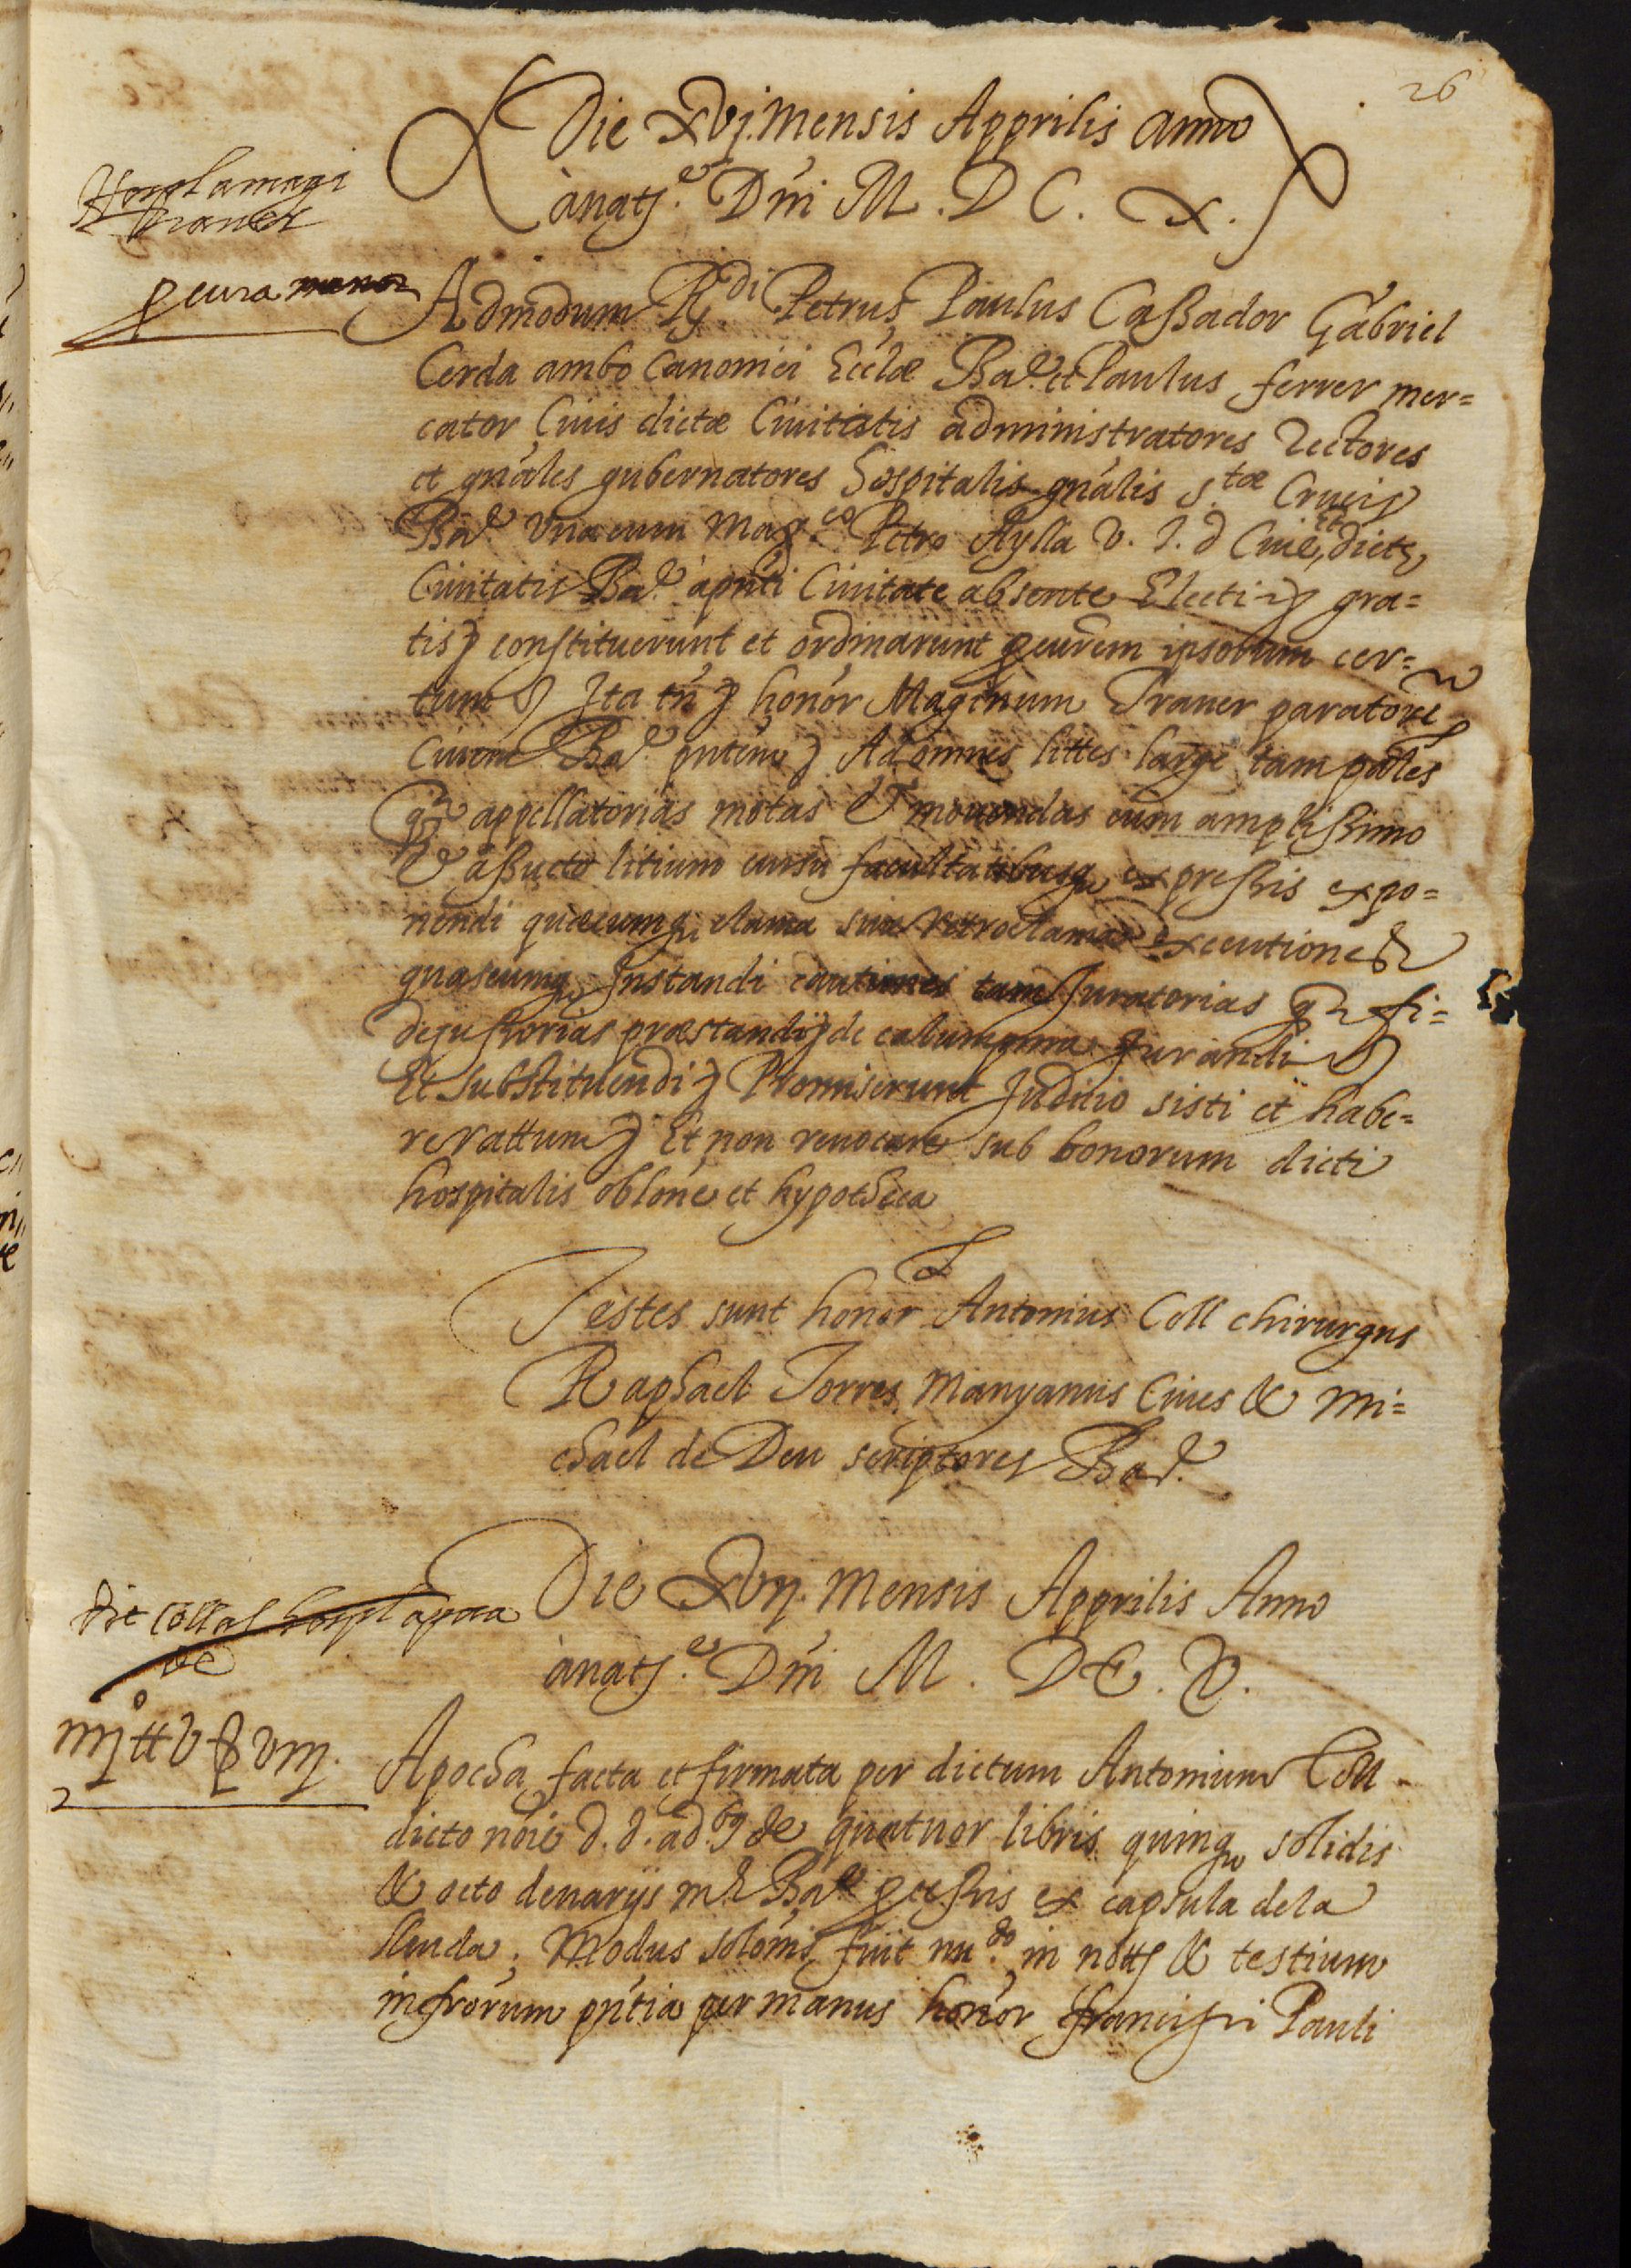 26
Die xvj. mensis Apprilis anno
à nat.e Dñi M. D C. x.
Hospl a magi
traner
p cura
Admodum R.di Petrus Paulus Cassador Gabriel
Cerda ambo Canonici Eccłæ Ba.e et Paulus ferrer mer=
cator Civis dictæ Civitatis administratores Rectores
et gñales gubernatores hospitalis gñalis s.tæ Crucis
Ba.e una cum mag.co Petro Aylla V. J. d Cive et dictę
Civitatis Ba.e à pñti Civitate absente Electi gra=
tis constituerunt et ordinarunt pcurem ipsorum cer=
tum Ita tñ honor Maginum Traner paratorẽ
Civem Ba.e pñtem Ad omnes littes large tam pãles
q̃ appellatorias motas et movendas cum amplissimo
assueto litium cursu facultatibusq, expressis expo=
nendi quæcumq, clama sive retroclama executiones
quascumq, Instandi cautiones tam Juratorias q̃ fi=
dejussorias præstandi de calumpnia Jurandi
Et substituendi Promiserunt Juditio sisti et habe=
re rattum Et non revocare sub bonorum dicti
hospitalis oblone et hypotheca
Testes sunt honor Antonius Coll chirurgus
Raphael Torres Manyanus Cives & Mi=
chael de Deu scriptores Ba.e
Die xvij. mensis Apprilis Anno
à nat.e Dñi M. D C. X.
dit Coll al hospl apoca
de
iiij ℔ v ẞ viij.
Apocha facta et firmata per dictum Antonium Coll
dicto nõie d. d. ad.bq de quatuor libris quinq, solidis
& octo denarijs Ba.e ex capsula dela
llenda. Modus solõnis fuit nu.do in not & testium
infrorum pñtia per manus honor francisci Pauli